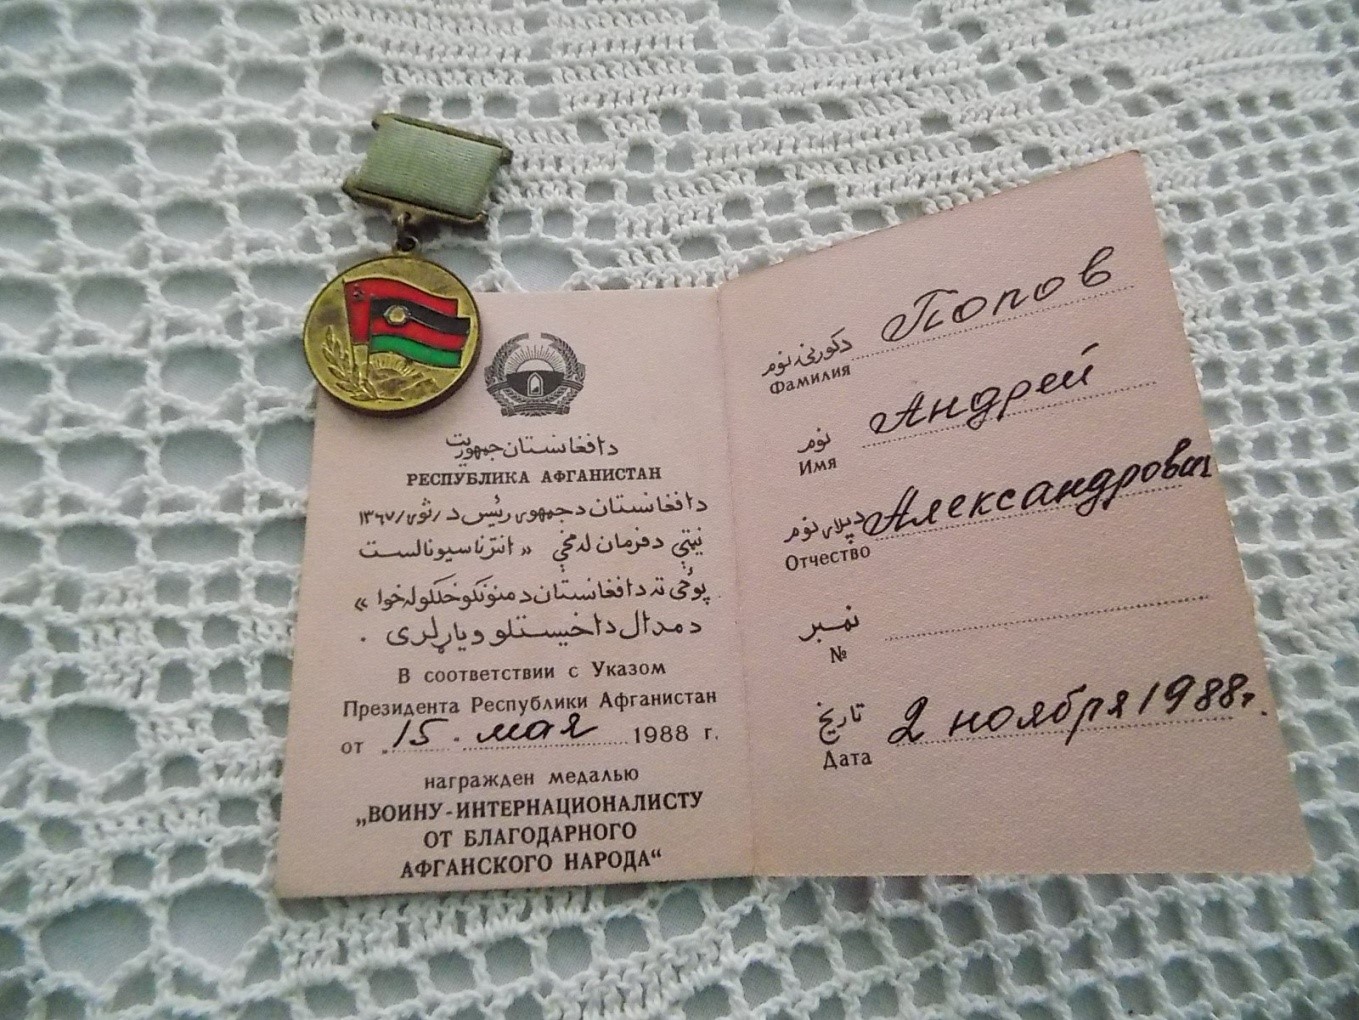 د افغانستان جمهوریت
РЕСПУБЛИКА АФГАНИСТАН
د افغانستان د جمهوری رئیس د /ثور/ ۱۳۶۷
نیټې د فرمان له مخې «انترناسیونالست
پوځی ته د افغانستان د مننونکو خلکو له خوا»
د مدال د اخیستلو ویاړ لری .
В соответствии с Указом
Президента Республики Афганистан
от „15 . мая 1988 г.
награжден медалью
„ВОИНУ-ИНТЕРНАЦИОНАЛИСТУ
ОТ БЛАГОДАРНОГО
АФГАНСКОГО НАРОДА“
دکورنۍ نوم Попов
Фамилия
نوم Андрей
Имя
د پلار نوم Александрович
Отчество
نمبر
№
تاریخ 2 ноября 1988г.
Дата